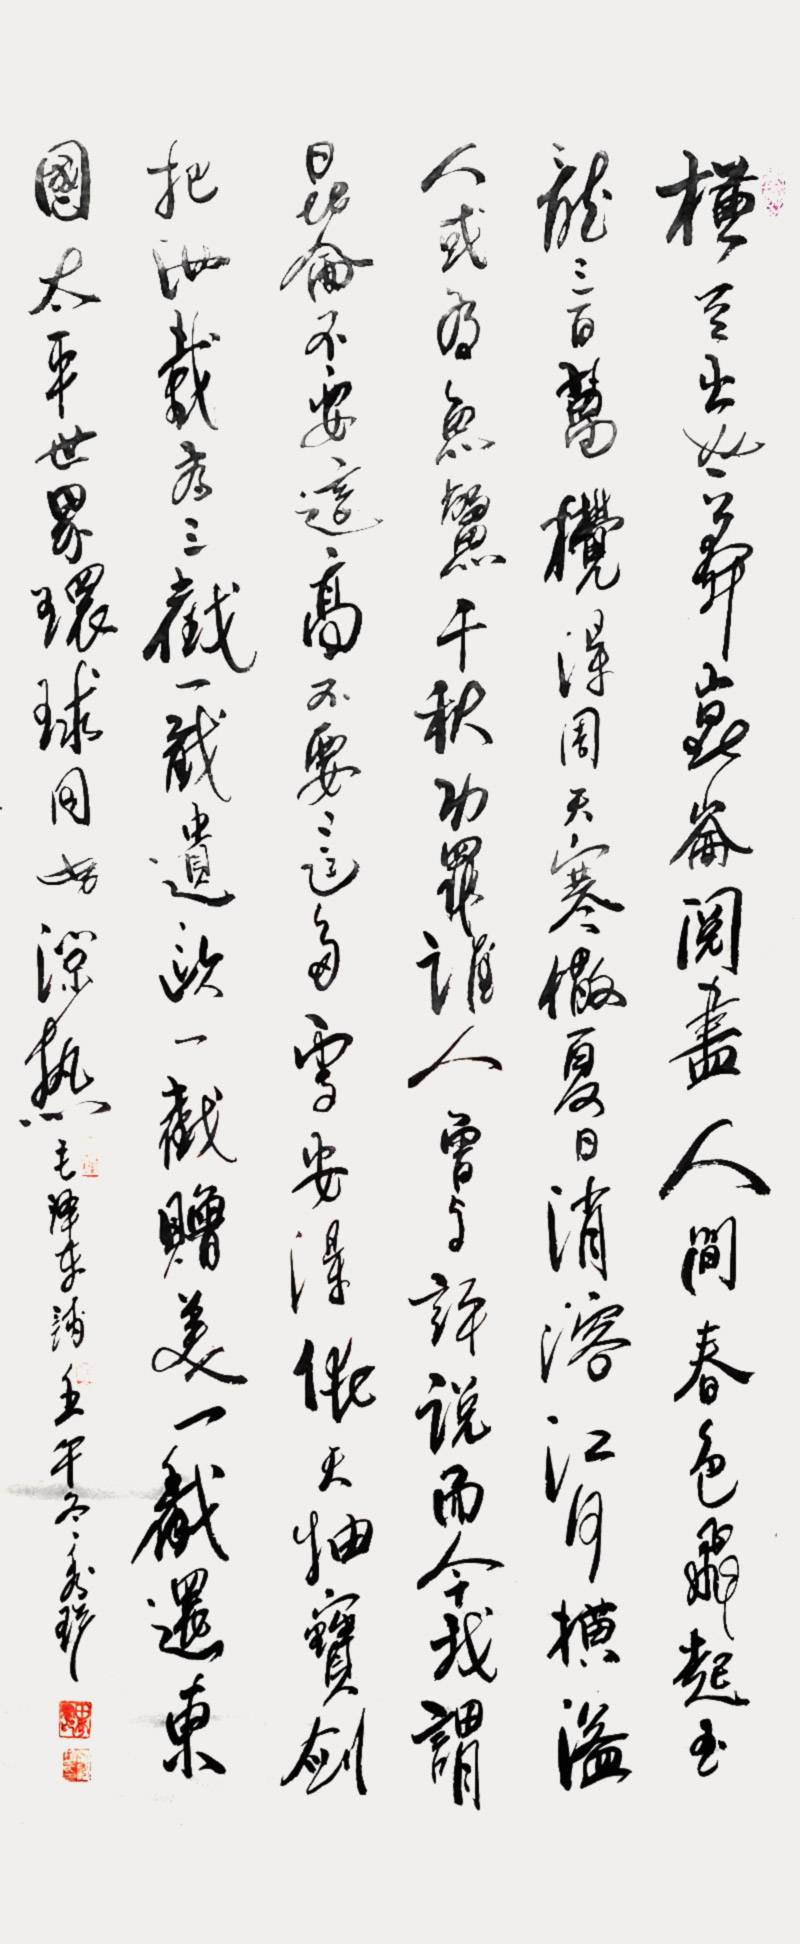 橫空出世莽崑崙閱盡人間春色飛起玉
龍三百萬攪得周天寒徹夏日消溶江河橫溢
人或為魚鱉千秋功罪誰人曾與評說而今我謂
昆侖不要這高不要這多雪安得倚天抽寶劍
把汝裁為三截一截遺歐一截贈美一截還東
國太平世界環球同此涼熱毛澤東壬午冬